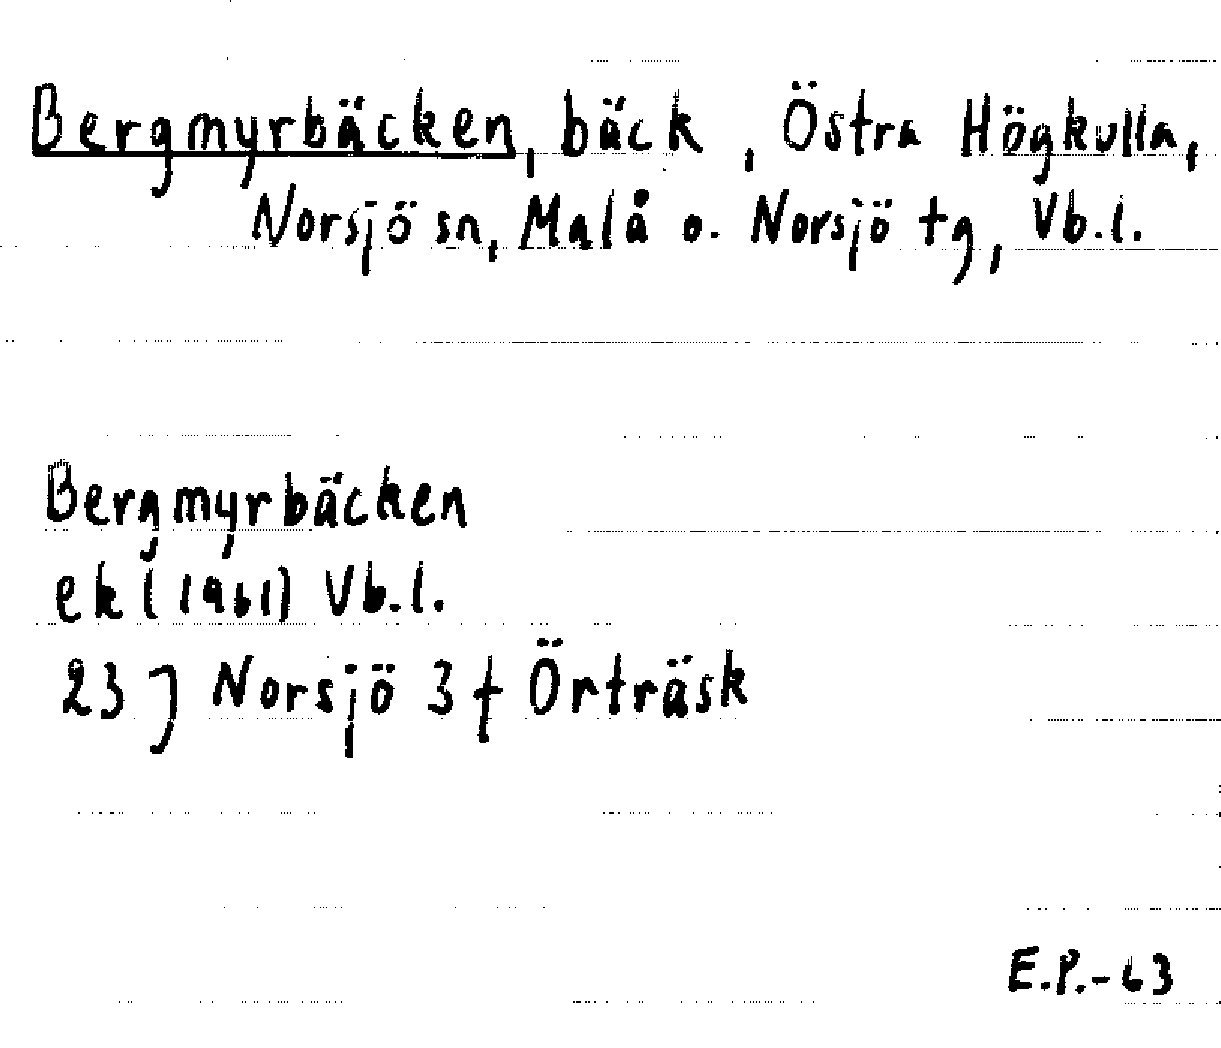 Bergmyrbäcken, bäck, Östra Högkulla,
Norsjö sn, Malå o. Norsjö tg, Vb.l.
Bergmyrbäcken
ek (1961) Vb.l.
23 J Norsjö 3 f Örträsk
E.P.-63